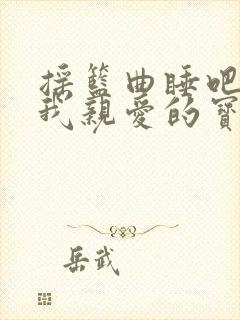 採籃曲睡吧
我親愛的寶
岳武